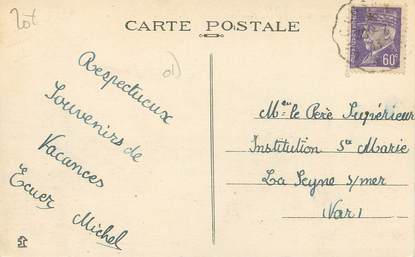 Lot
CARTE POSTALE
60c
Respectueux
Souvenirs de
Vacances
Ecuer Michel
Mr le Père Supérieur
Institution Ste Marie
La Seyne s/mer
Var